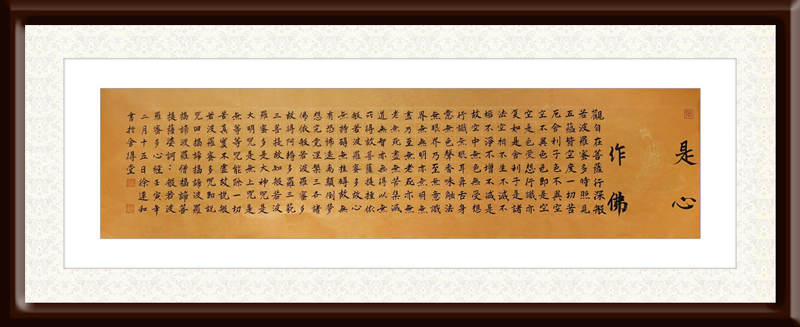 是心
作佛
觀自在菩薩行深般
若波羅蜜多時照見
五蘊皆空度一切苦
厄舍利子色不異空
空不異色色即是空
空是色受想行識亦
復如是舍利子是諸
法空相不生不滅不
垢不淨不增不減是
故空中無色無受想
行識無眼耳鼻舌身
意無色聲香味觸法
無眼界乃至無意識
界無無明亦無無明
盡乃至無老死亦無
老死盡無苦集滅
道無智亦無得以無
所得故菩提薩埵依
般若波羅蜜多故心
無罣礙無罣礙故無
有恐怖遠離顛倒夢
想究竟涅槃三世諸
佛依般若波羅蜜多
故得阿耨多羅三藐
三菩提故知般若波
羅蜜多是大神咒是
大明咒是無上咒是
無等等咒能除一切
苦真實不虛故說般
若波羅蜜多咒即說
咒曰揭諦揭諦波羅
揭諦波羅僧揭諦菩
提薩婆訶般若波
羅蜜多心經壬寅年
二月十五日徐運和
書於舍得堂